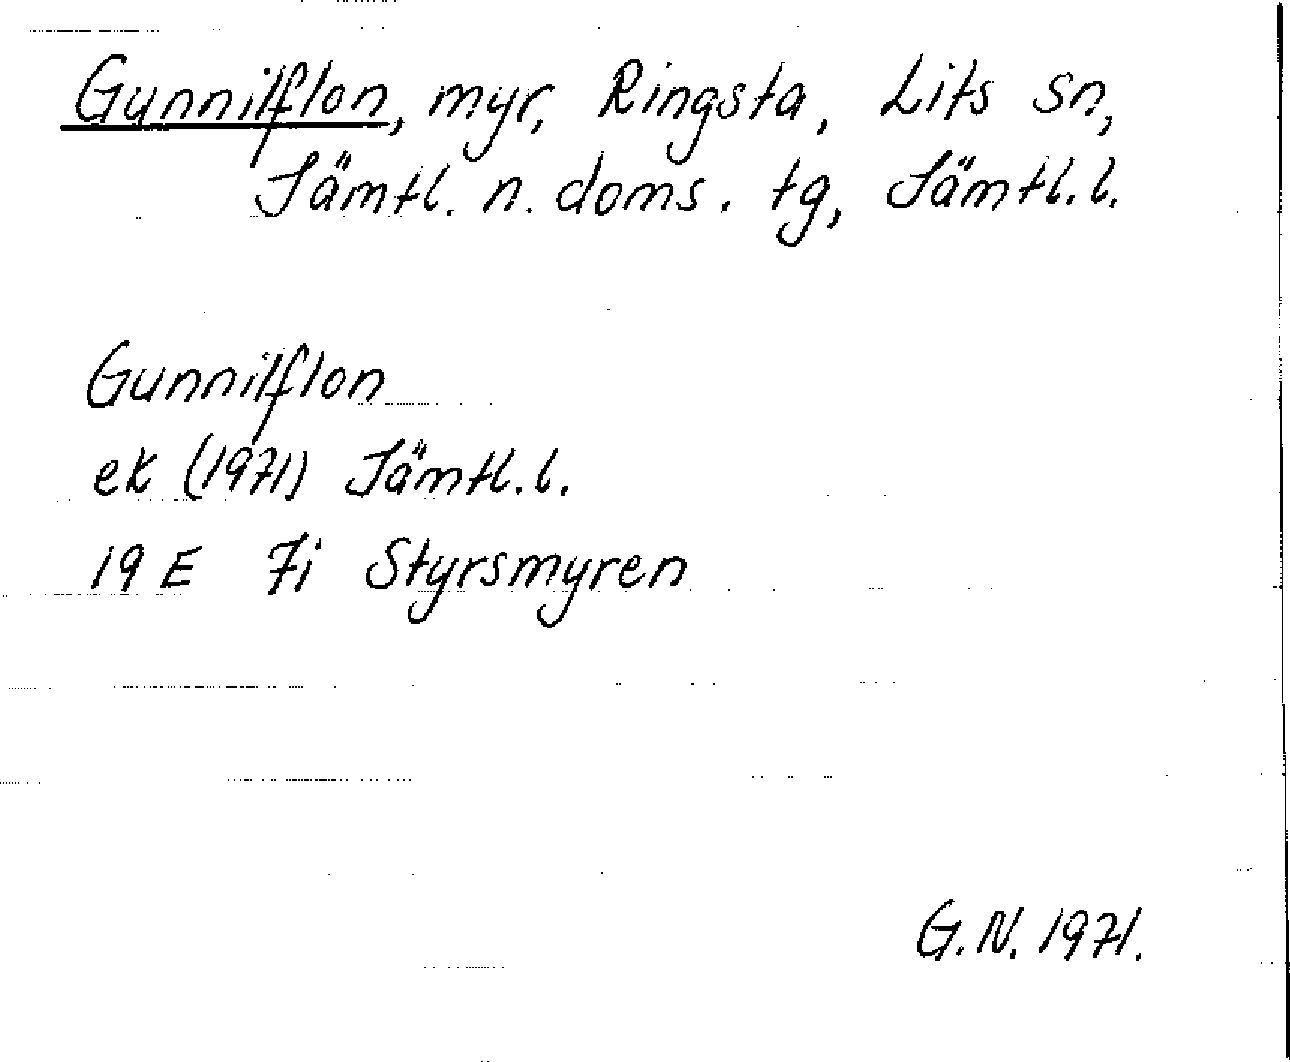 Gunnilflon, myr, Ringsta, Lits sn,
Jämtl. n. doms. tg, Jämtl. l.
Gunnilflon
ek (1971) Jämtl. l.
19 E 7i Styrsmyren
G. N. 1971.